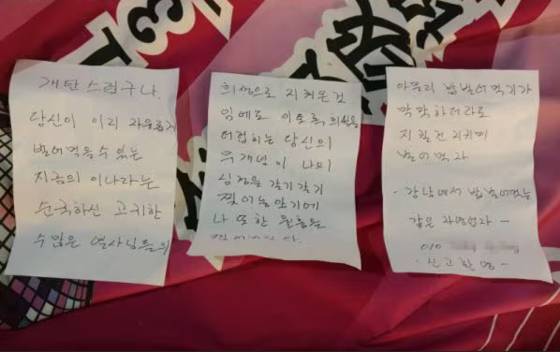 개탄스럽구나.
당신이 이리 자유롭게
벌어먹을수 있는
지금의 이나라는
순국하신 고귀한
수많은 열사님들의
희생으로 지켜온것
임에도 이토록 희생을
더럽히는 당신의
무개념이 나의
심장을 갈기갈기
찢어놓았기에
나 또한 물통을
아무리 밥벌어먹기가
막막하더라도
지킬건 지키며
벌어먹자
- 강남에서 밥벌어먹는
같은 자영업자 -
010
- 신고환영 -